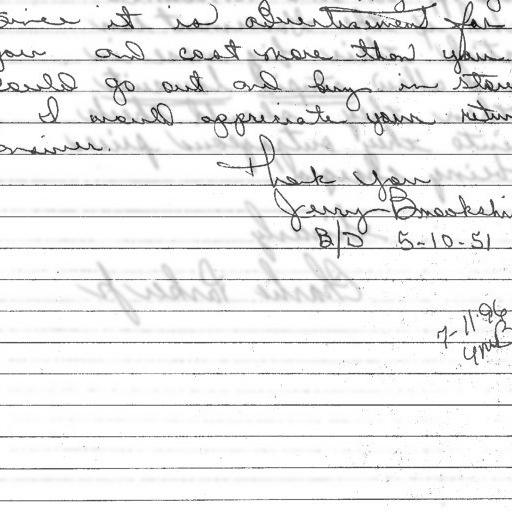 since it is advertisement for
your and cost more than you
could go out and buy in store
I would appreciate your return
answer.
Thank You
Jerry Brookshi
B/D 5-10-51
7-11-96